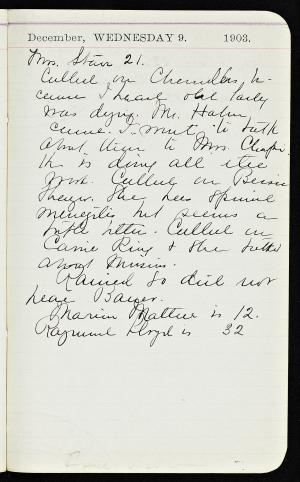 December, WEDNESDAY 9. 1903.
Mrs. Starr 21.
Called on Chandlers be-
cause I heard old lady
was dying. Mr. Hahn
came. I went to talk
about them to Mrs.
He is doing all the
work. Called on
She has spinal
but seems a
little better. Called on
Carrie Ring & she talked
about
Rained so did not
hear
Marion is 12.
Raymond Lloyd is 32